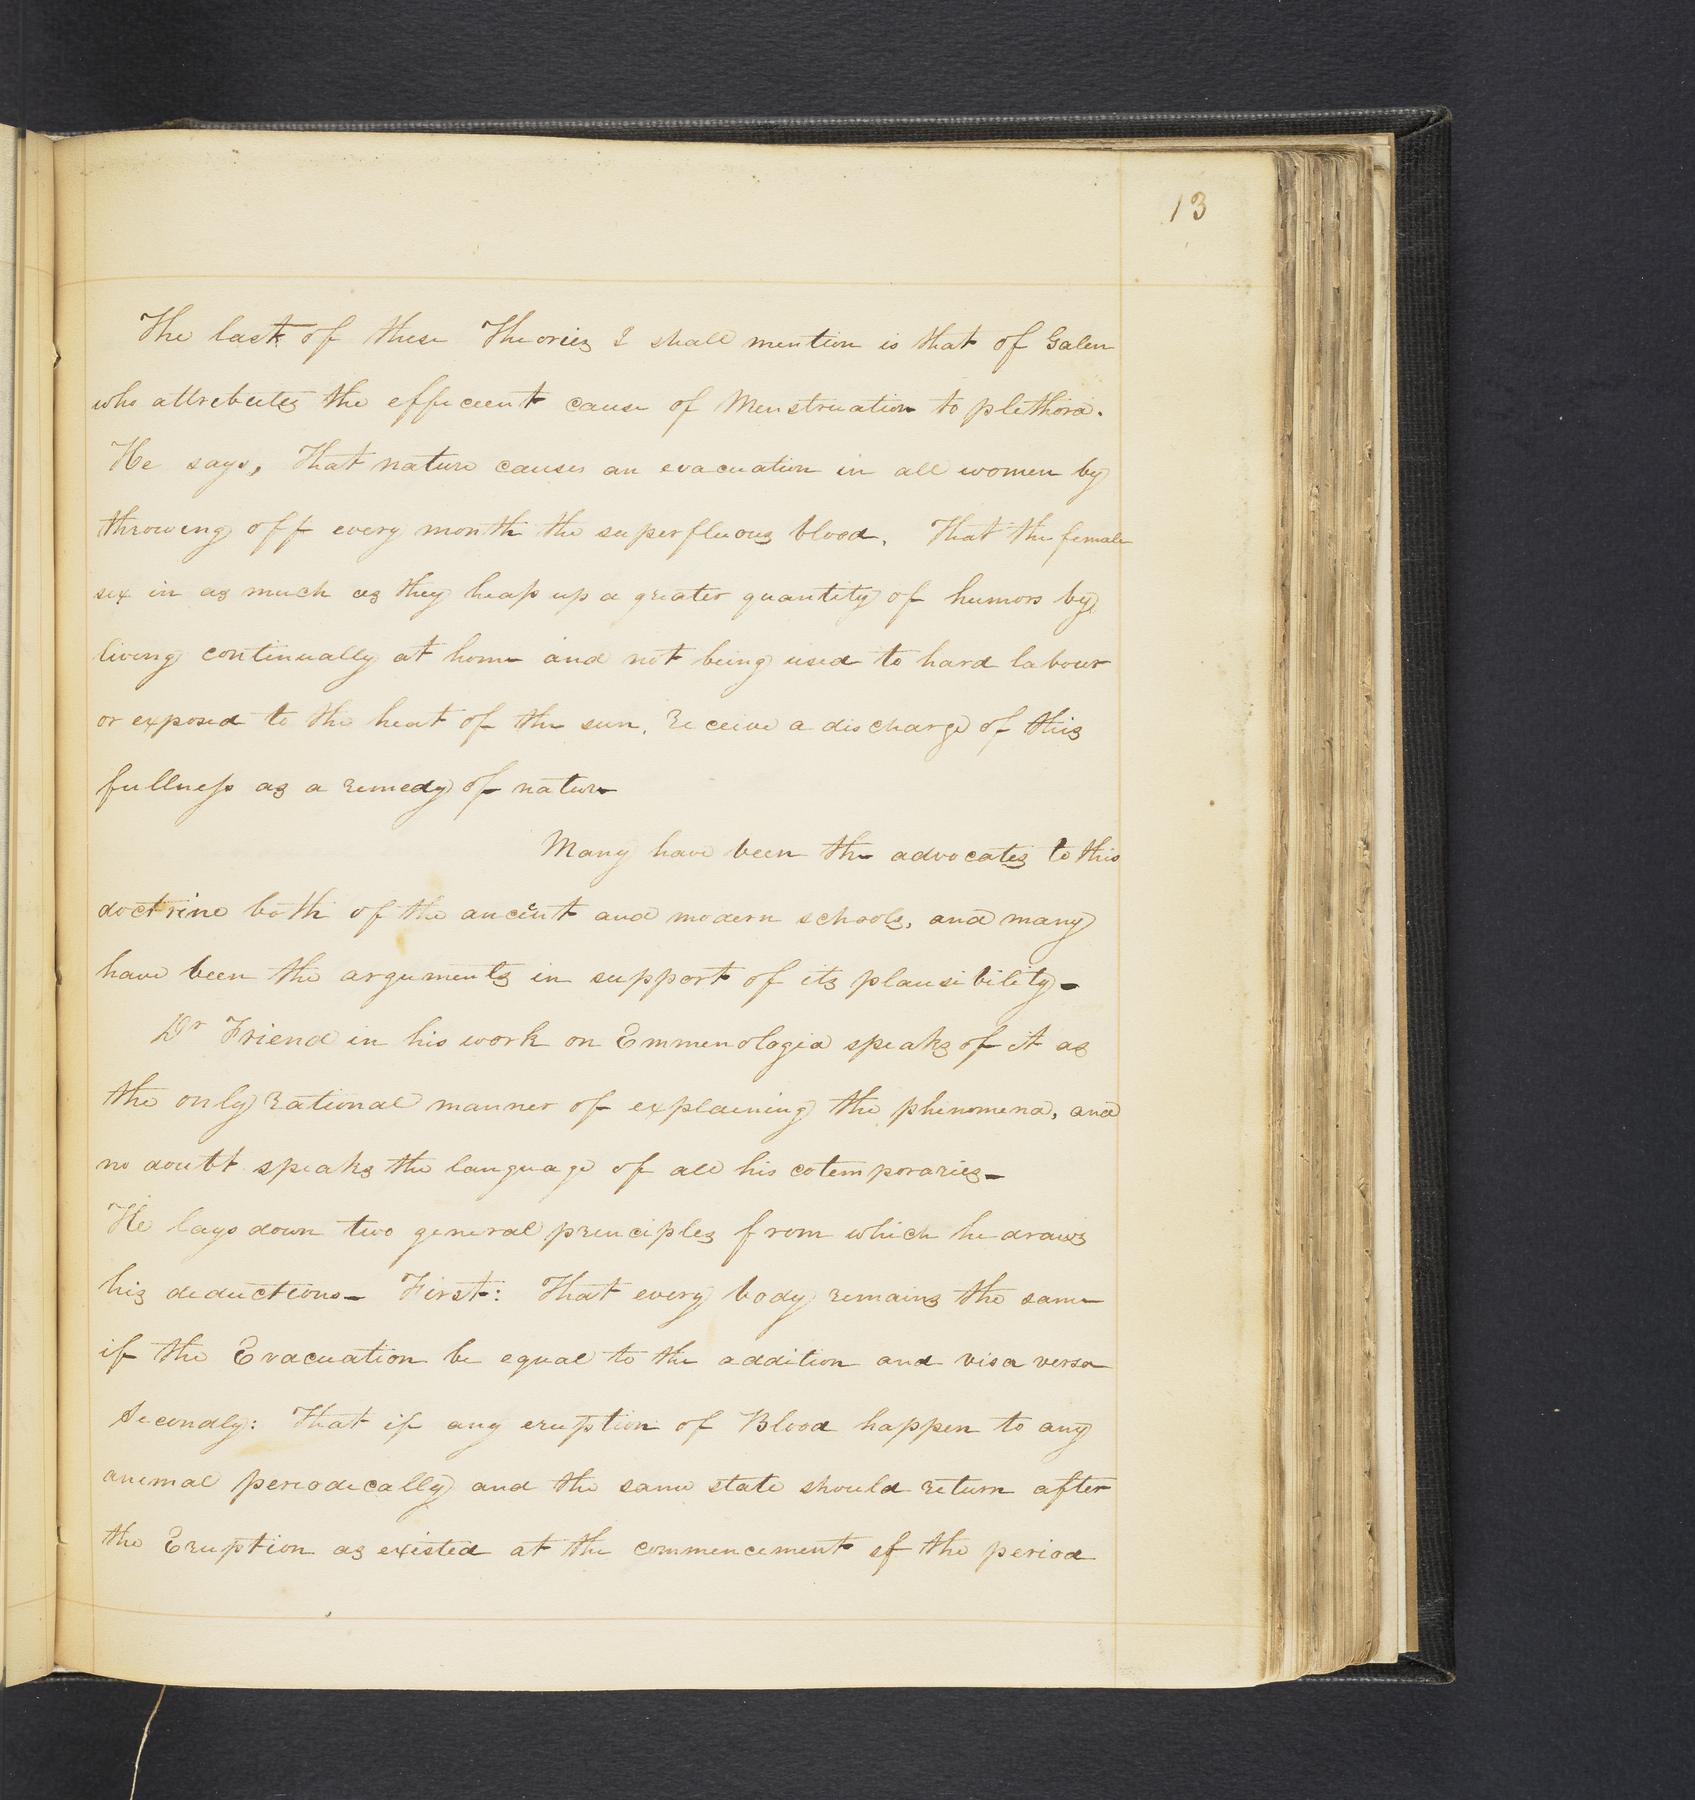 13
The last of these Theories I shall mention is that of Galen
who attributes the efficient cause of Menstruation to plethora.
He says, That nature causes an evacuation in all women by
throwing off every month the superfluous blood. That the female
sex in as much as they heap up a greater quantity of humors by
living continually at home and not being used to hard labour
or exposed to the heat of the sun, receive a discharge of this
fullness as a remedy of nature
Many have been the advocates to this
doctrine both of the ancient and modern schools, and many
have been the arguments in support of its plausibility-
Dr Friend in his work on Emmenologia speaks of it as
the only rational manner of explaining the phenomena, and
no doubt speaks the language of all his cotemporaries-
He lays down two general principles from which he draws
his deductions- First: That every body remains the same
if the Evacuation be equal to the addition and visa versa
Secondly: That if any eruption of Blood happen to any
animal periodically and the same state should return after
the Eruption as existed at the commencement of the period